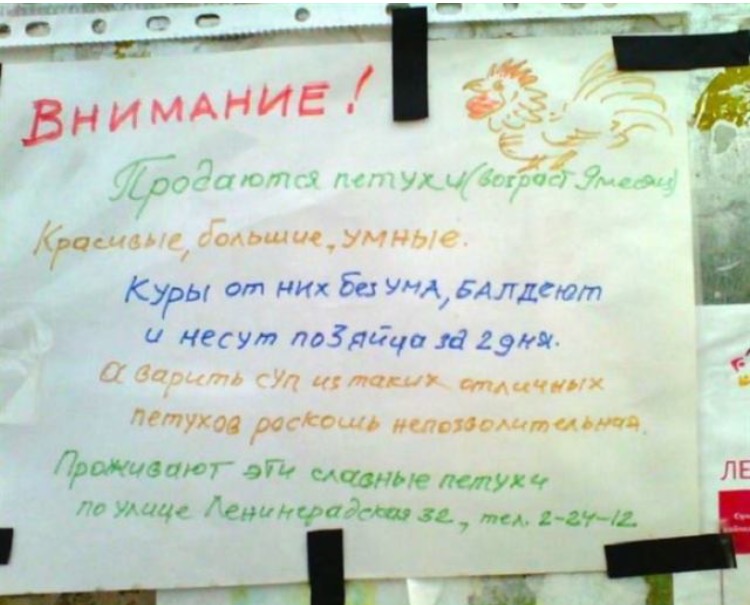 ВНИМАНИЕ!
Продаются петухи (возраст 9 месяц)
Красивые, большие, умные.
Куры от них без ума, БАЛДЕЮТ
и несут по 3 яйца за 2 дня.
а варить суп из таких отличных
петухов роскошь непозволительная.
Проживают эти славные петухи
по улице Ленинградская 32, тел. 2-24-12
ЛЕ